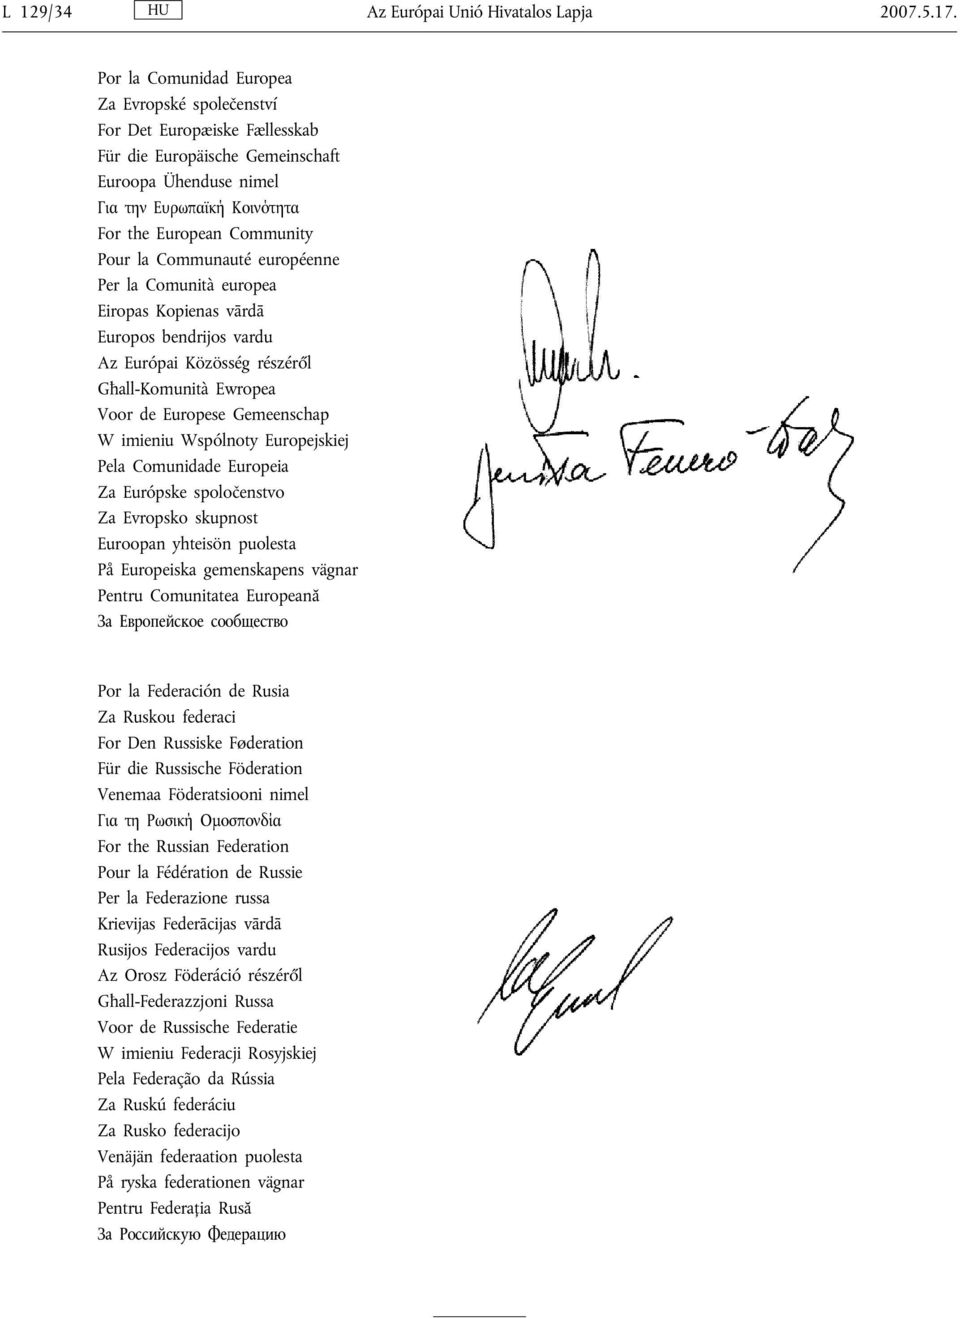 L 129/34 HU Az Európai Unió Hivatalos Lapja 2007.5.17.
Por la Comunidad Europea
Za Evropské společenství
For Det Europæiske Fællesskab
Für die Europäische Gemeinschaft
Euroopa Ühenduse nimel
Για την Ευρωπαϊκή Κοινότητα
For the European Community
Pour la Communauté européenne
Per la Comunità europea
Eiropas Kopienas vārdā
Europos bendrijos vardu
Az Európai Közösség részéről
Għall-Komunità Ewropea
Voor de Europese Gemeenschap
W imieniu Wspólnoty Europejskiej
Pela Comunidade Europeia
Za Európske spoločenstvo
Za Evropsko skupnost
Euroopan yhteisön puolesta
På Europeiska gemenskapens vägnar
Pentru Comunitatea Europeană
За Европейское сообщество
Por la Federación de Rusia
Za Ruskou federaci
For Den Russiske Føderation
Für die Russische Föderation
Venemaa Föderatsiooni nimel
Για τη Ρωσική Ομοσπονδία
For the Russian Federation
Pour la Fédération de Russie
Per la Federazione russa
Krievijas Federācijas vārdā
Rusijos Federacijos vardu
Az Orosz Föderáció részéről
Għall-Federazzjoni Russa
Voor de Russische Federatie
W imieniu Federacji Rosyjskiej
Pela Federação da Rússia
Za Ruskú federáciu
Za Rusko federacijo
Venäjän federaation puolesta
På ryska federationen vägnar
Pentru Federația Rusă
За Российскую Федерацию